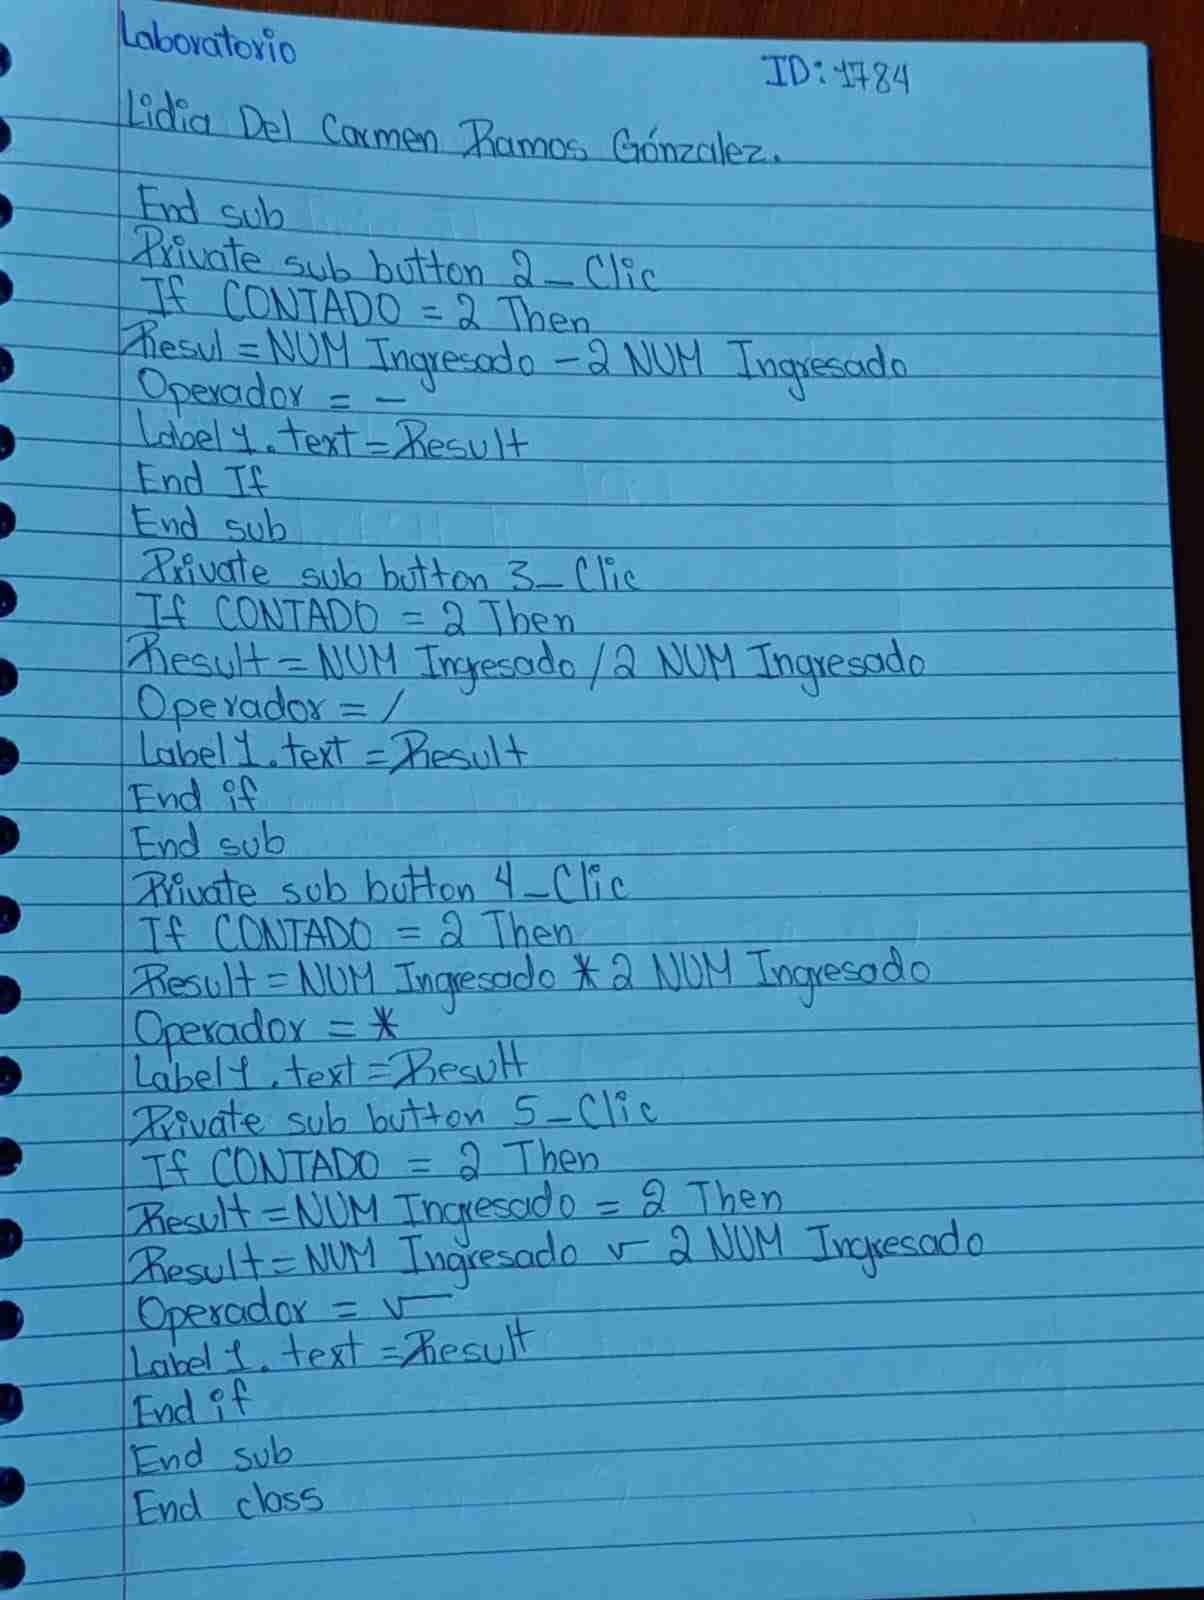 Laboratorio
ID: 1784
Lidia Del Carmen Ramos Gónzalez.
End sub
Private sub button 2_Clic
If CONTADO = 2 Then
Resul = NUM Ingresado - 2 NUM Ingresado
Operador = -
Label 1. text = Result
End If
End sub
Private sub button 3_Clic
If CONTADO = 2 Then
Result = NUM Ingresado / 2 NUM Ingresado
Operador = /
Label 1. text = Result
End if
End sub
Private sub button 4_Clic
If CONTADO = 2 Then
Result = NUM Ingresado * 2 NUM Ingresado
Operador = *
Label 1. text = Result
Private sub button 5_Clic
If CONTADO = 2 Then
Result = NUM Ingresado = 2 Then
Result = NUM Ingresado √ 2 NUM Ingresado
Operador = √
Label 1. text = Result
End if
End sub
End class